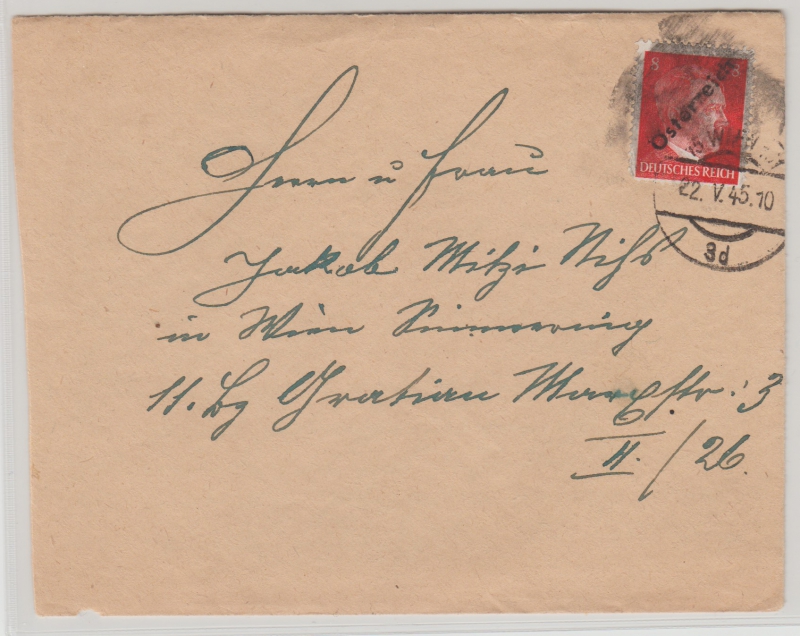 8 8
Österreich
DEUTSCHES REICH
15 WIEN
22. V. 45. 10
3d
Herrn u Frau
Jakob Mitzi
in Wien Simmering
11. Bz Gratian Marxstr: 3
II. / 26.